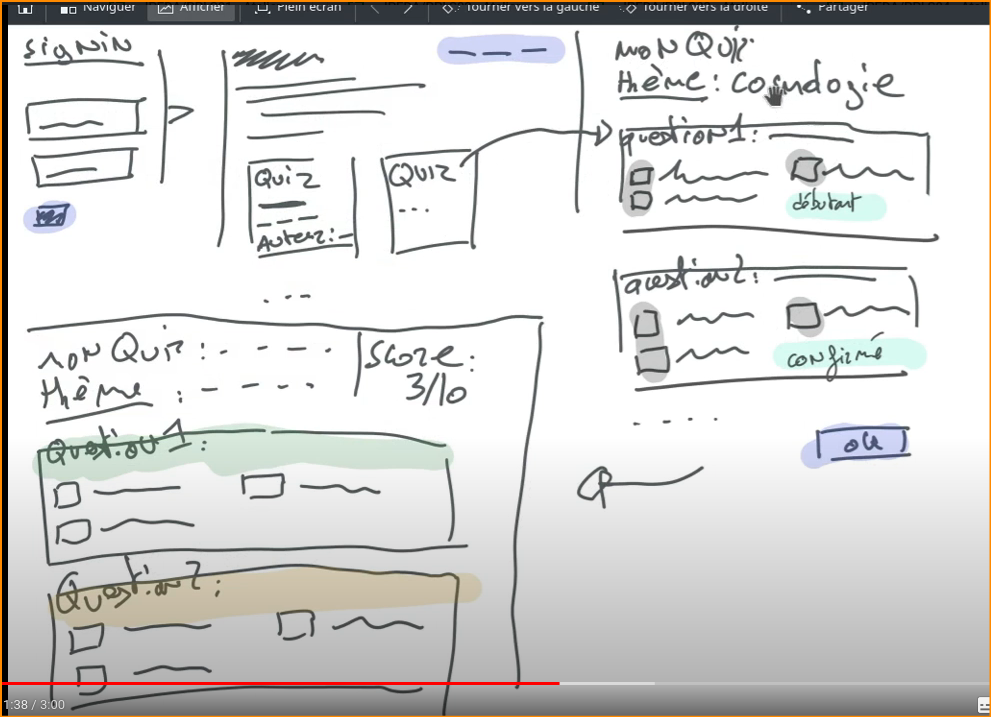 Naviguer
Afficher
Plein écran
Tourner vers la gauche
Tourner vers la droite
Partager
SIGNIN
Quiz
Auteur :
QUIZ
...
...
MON QUIZ
thème : cosmologie
question 1 :
débutant
question 2 :
confirmé
....
ok
MON QUIZ :
thème :
Score :
3/10
Question 1 :
Question 2 :
1:38 / 3:00